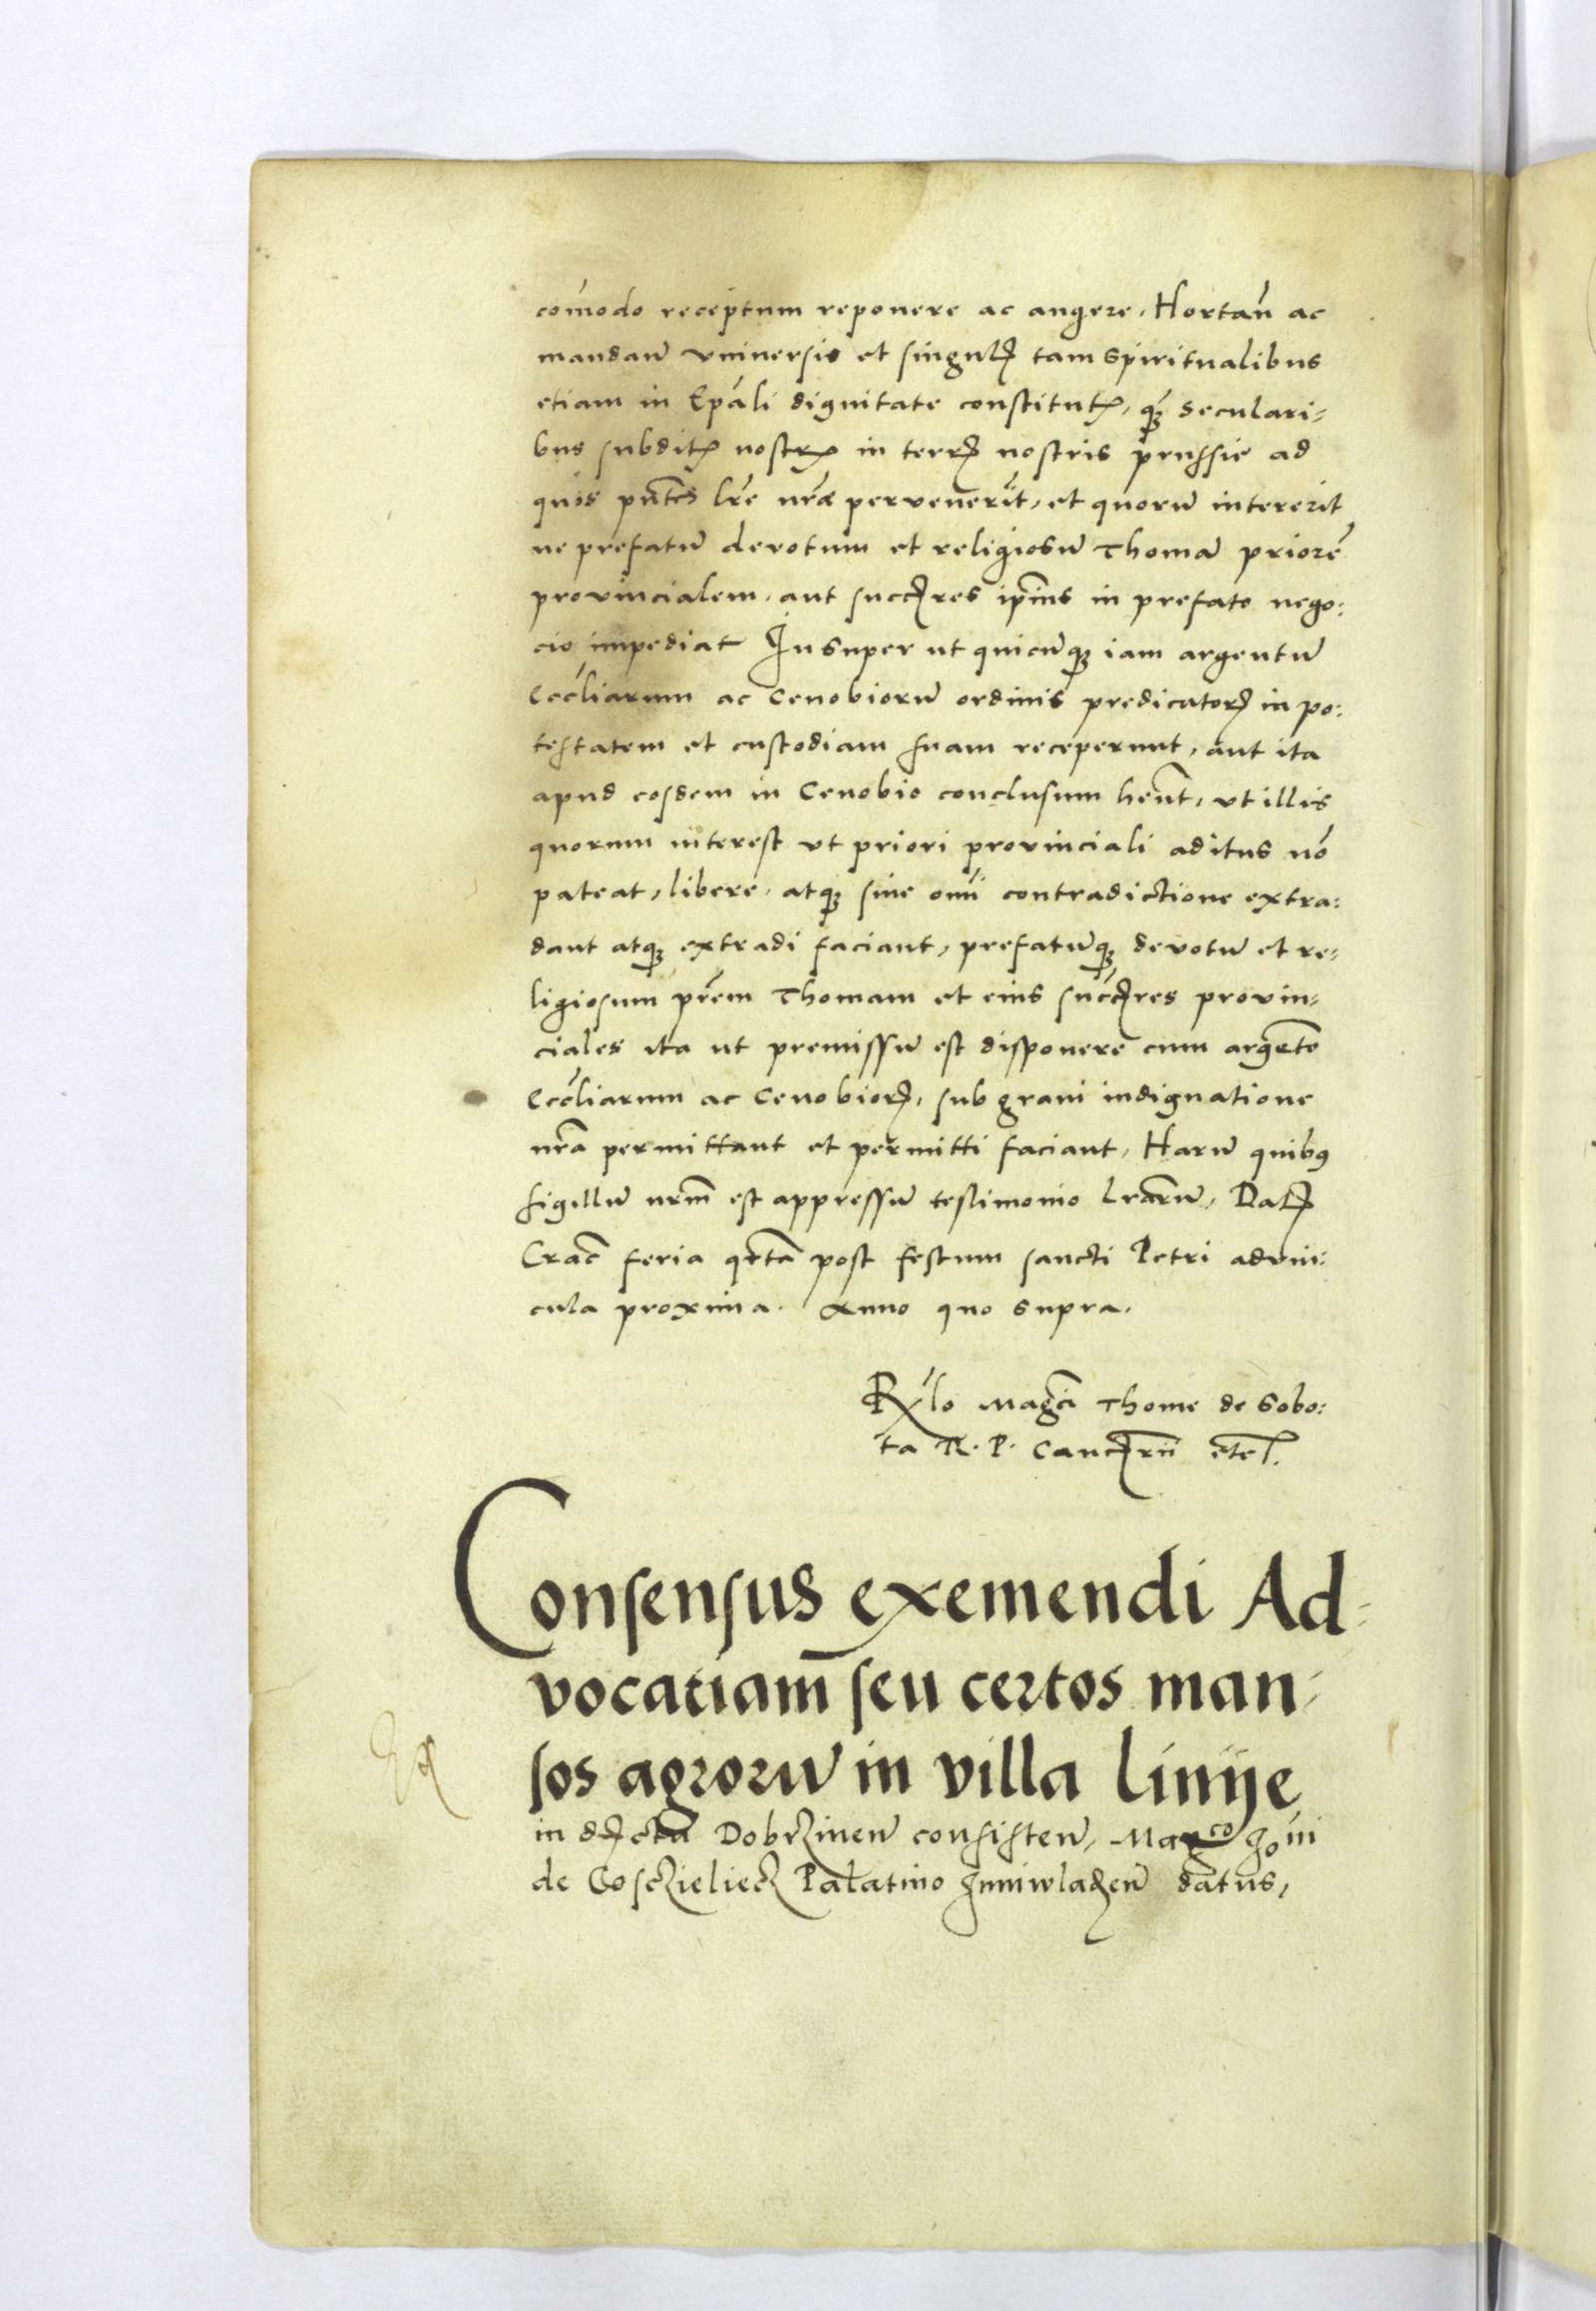 com̄odo receptum reponere ac augere, Hortan̄ ac
mandan̄ vniuersis et singulꝭ tam spiritualibus
etiam in Ep̄ali dignitate constitutꝭ, qꝫ seculari-
bus subditꝭ nostrꝭ in terrꝭ nostris prussie ad
quos pn̄tes lr̄e nr̄ae peruenerūt, et quorū intererit
ne prefatū deuotum et religiosū Thomā priorē
prouincialem, aut succꝭres ip̄ius in prefato nego:
cio impediāt Insuper ut quicūqꝫ iam argentū
Eccl̄iarum ac Cenobiorū ordinis predicatorꝭ in po:
testatem et custodiam suam receperunt, aut ita
apud eosdem in Cenobio conclusum hen̄t, vt illis
quorum interest vt priori prouinciali aditus nō
pateat, libere, atqꝫ sine om̄i contradictione extra:
dant atqꝫ extradi faciant, prefatūqꝫ deuotū et re-
ligiosum pr̄em Thomam et eius succꝭres prouin-
ciales ita ut premissū est disponere cum argēto
Eccl̄iarum ac Cenobiorꝭ, sub graui indignatione
nr̄a permittant et permitti faciant, Harū quibꝰ
sigillū nr̄m est appressū testimonio lr̄arū, Datꝭ
Crac̄ feria qr̄ta post festum sancti Petri ad vin:
cula proxima. Anno quo supra.
Rl̄o Maḡci Thome de Sobo:
ta R. P. Cancꝭrii etc̄.
Consensus exemendi Ad-
vocatiam̄ seu certos man-
sos agrorū in villa Linije
in dꝭctū Dobrzinen̄ consisten̄, Mag̅co Joāni
de Cosczieliecz Palatino Juniwladꝭen̄ datus,